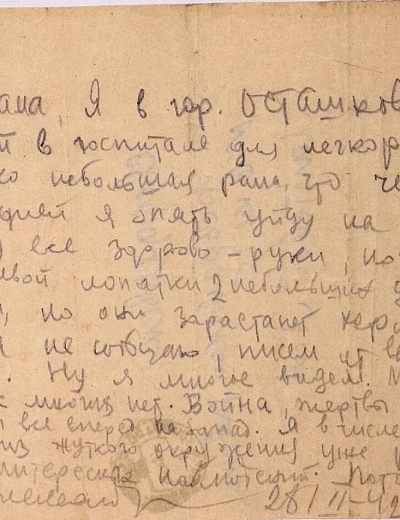 ама, я в гор. Осташков
й в госпитале для легкор
ко небольшая рана, что че
дней я опять уйду на
все здорово – руки, но
вой лопатки 2 небольших
, но они зарастают
не сообщаю, писем от в
. Ну я многое видел. М
многих нет. Война, жертвы
все вперед на запад. Я в числе
из жуткого окружения уже
интересная
28/II-42